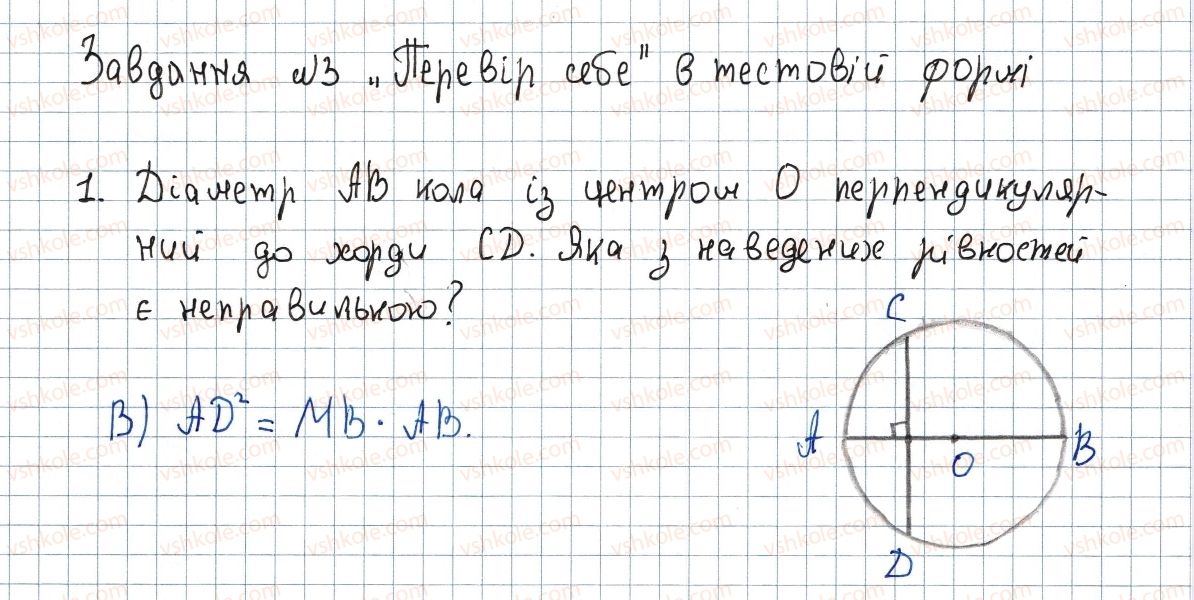 Завдання №3 „Перевір себе" в тестовій формі
1. Діаметр АВ кола із центром О перпендикуляр-
ний до хорди CD. Яка з наведених рівностей
є неправильною?
C
В) AD² = MB · AB.
A
B
O
D